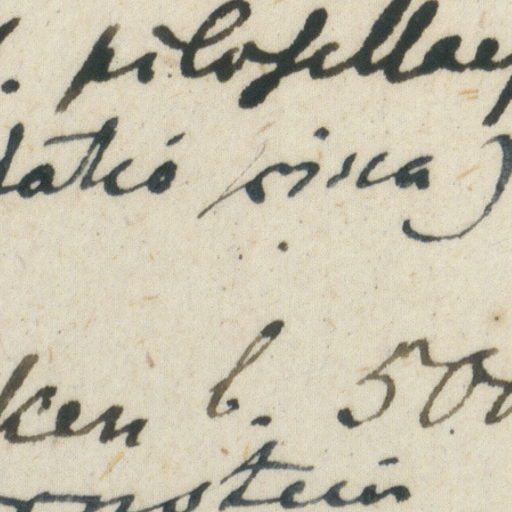 . pilosellae
datio sicca)
ken b. 500
rnstein